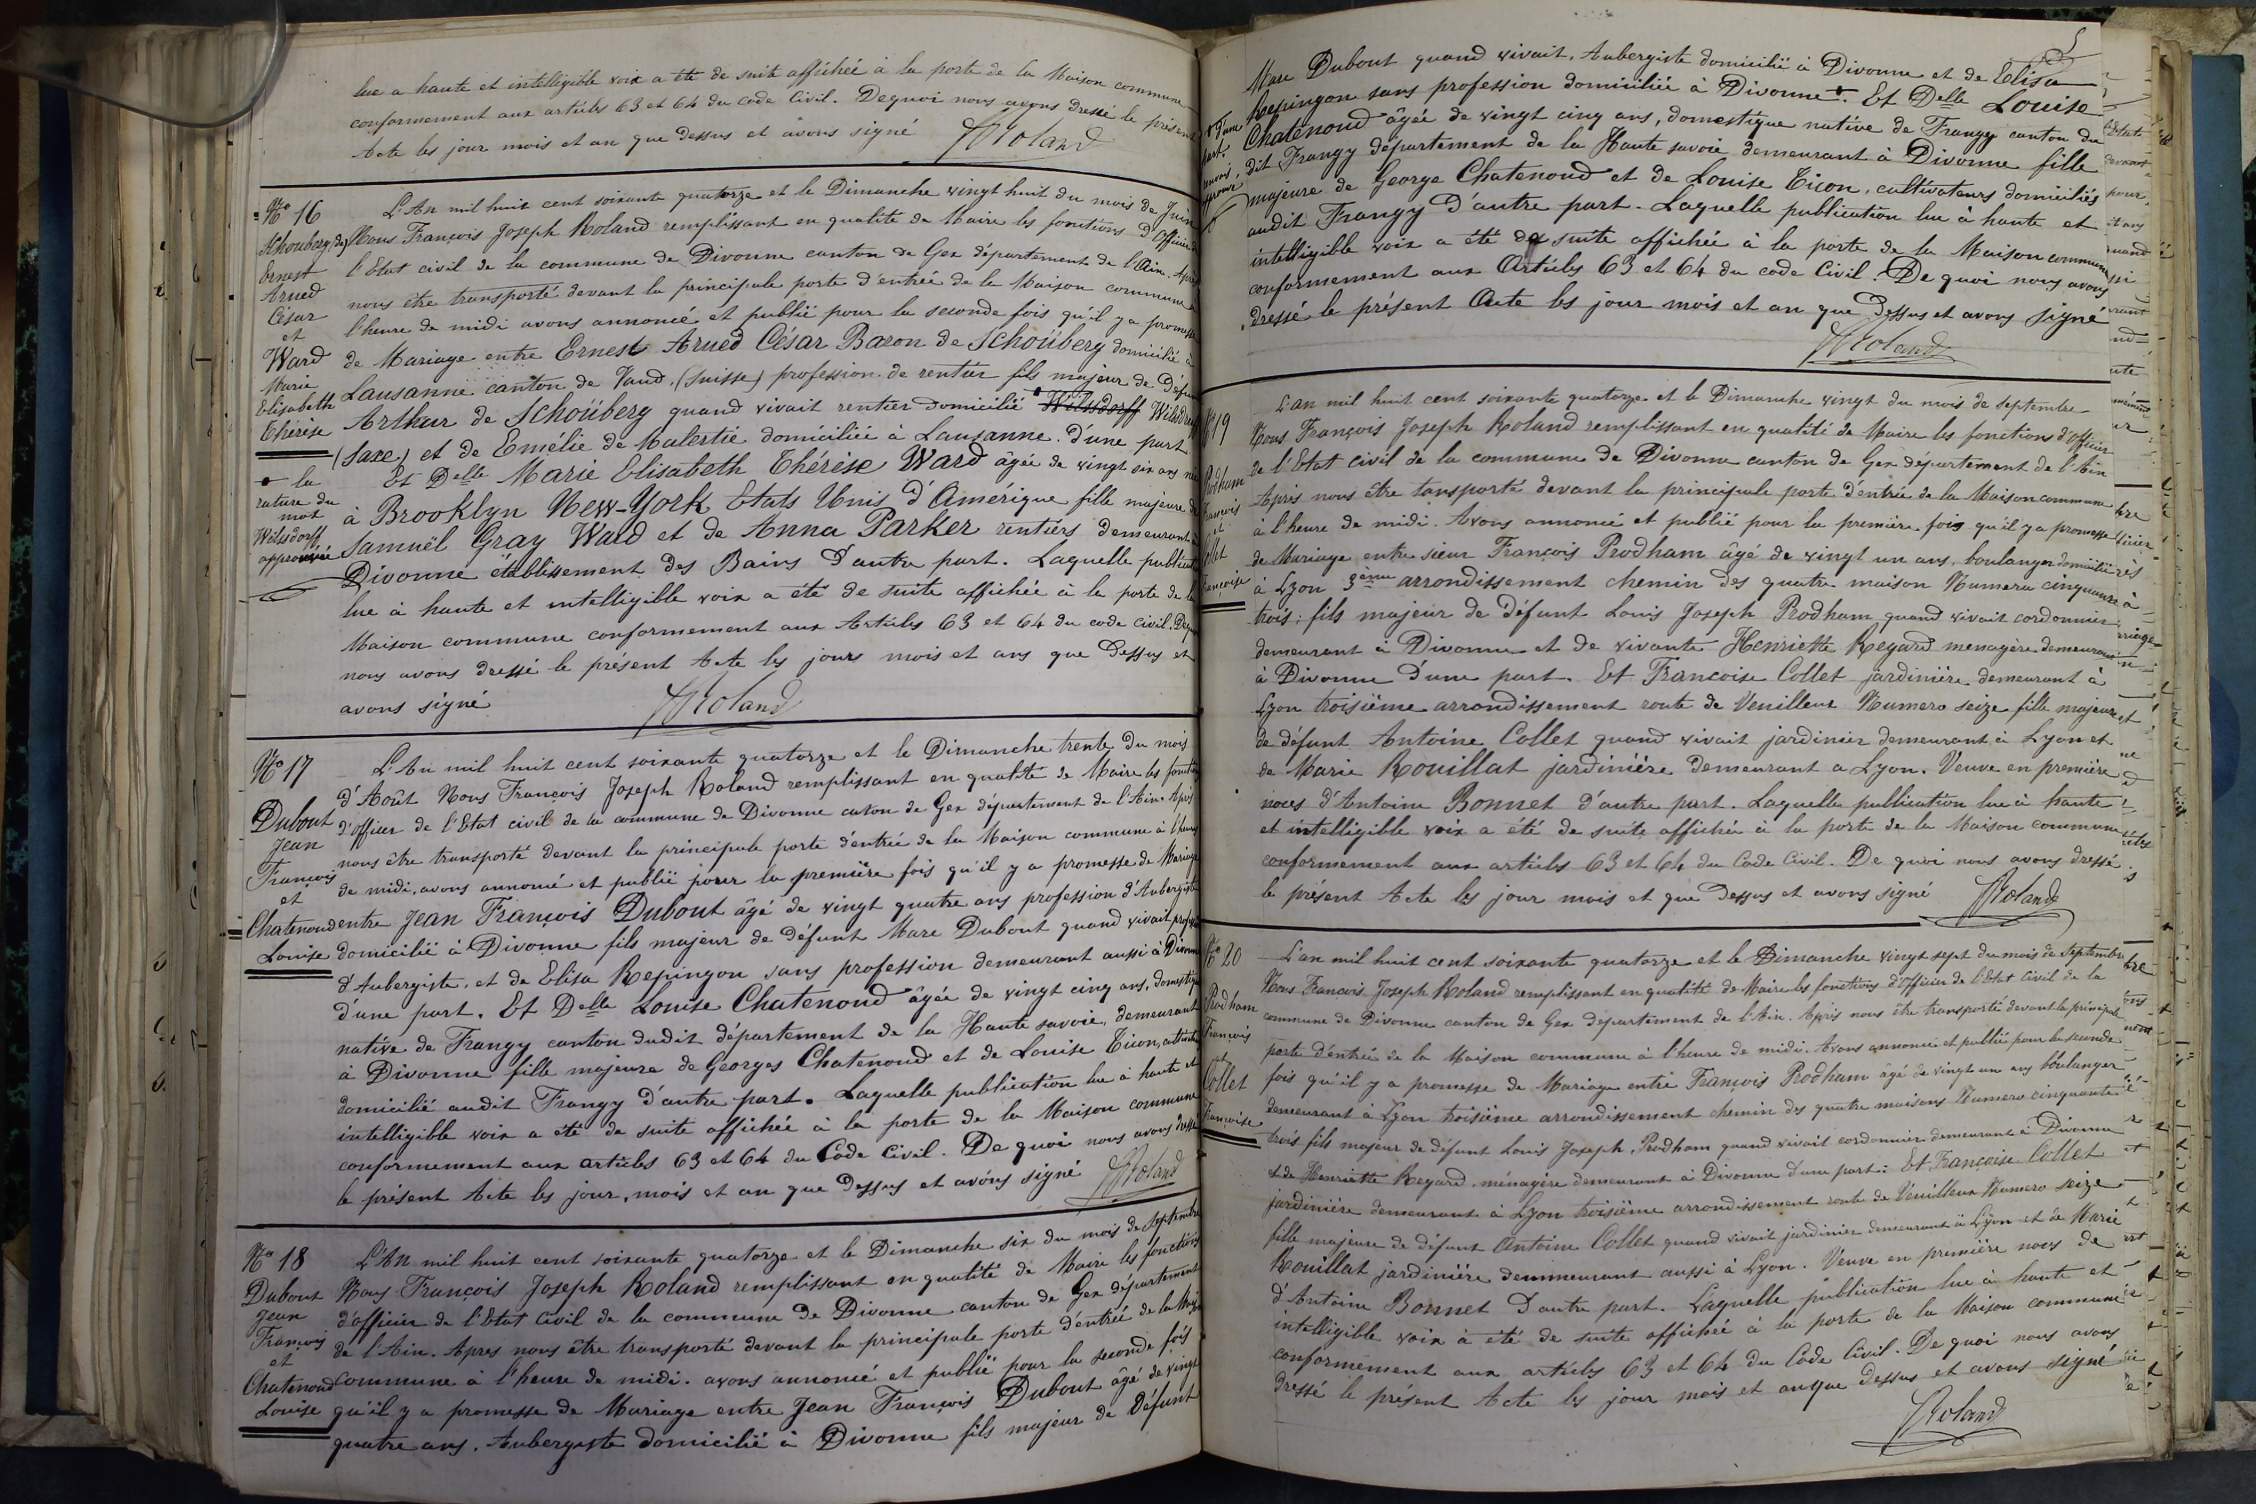 lue a haute et intelligible voix a été de suite affichée à la porte de la Maison commune
conformement aux articles 63 et 64 du Code Civil. Dequoi nous avons dressé le présent
Acte les jour mois et an que dessus et avons signé
Roland
N° 16
Schouberg (de)
Ernest
Arued
César
et
Ward
Marie
Elisabeth
Thérèse
la
rature du
mot
Wilsdorff
approuvée
L'An mil huit cent soixante quatorze et le Dimanche vingt huit du mois de Juin
Nous François Joseph Roland remplissant en qualité de Maire les fonctions d'Officier de
l'Etat civil de la commune de Divonne canton de Gex département de l'Ain. Après
nous être transporté devant la principale porte d'entrée de la Maison commune à
l'heure de midi avons annoncé et publié pour la seconde fois qu'il y a promesse
de Mariage entre Ernest Arued César Baron de Schoüberg domicilié à
Lausanne canton de Vaud (Suisse) profession de rentier fils majeur de Défunt
Arthur de Schoüberg quand vivait rentier domicilié Wilsdorff
(Saxe) et de Emélie de Malertie domiciliée à Lausanne. d'une part
Et Delle Marie Elisabeth Thérèse Ward âgée de vingt six ans née
à Brooklyn New-York Etats Unis d'Amérique fille majeure de
Samuël Gray Ward et de Anna Parker rentiers demeurant à
Divonne établissement des Bains D'autre part. Laquelle publication
lue à haute et intelligible voix a été de suite affichée à la porte de la
Maison commune conformement aux Articles 63 et 64 du code civil. De quoi
nous avons dressé le présent Acte les jours mois et ans que Dessus et
avons signé
Roland
N° 17
Dubout
Jean
François
et
Chatenoud
Louise
L'An mil huit cent soixante quatorze et le Dimanche trente du mois
d'Août Nous François Joseph Roland remplissant en qualité de Maire les fonctions
d'officier de l'Etat civil de la commune de Divonne caton de Gex département de l'Ain. Après
nous être transporté devant la principale porte d'entrée de la Maison commune à l'heure
de midi, avons annoncé et publié pour la première fois qu'il y a promesse de Mariage
entre Jean François Dubout âgé de vingt quatre ans profession d'Aubergiste
domicilié à Divonne fils majeur de défunt Marc Dubout quand vivait profession
d'Aubergiste, et de Elisa Repingon sans profession demeurant aussi à Divonne
d'une part. Et Delle Louise Chatenoud âgée de vingt cinq ans, domestique
native de Frangy canton dudit département de la Haute savoie, demeurant
à Divonne fille majeure de Georges Chatenoud et de Louise Ticon, cultivateurs
domicilié audit Frangy d'autre part. Laquelle publication lue à haute et
intelligible voix a été de suite affichée à la porte de la Maison commune
conformement aux articles 63 et 64 du Code Civil. De quoi nous avons dressé
le présent Acte les jour, mois et an que Dessus et avons signé
Roland
N° 18
Dubout
Jean
François
et
Chatenoud
Louise
L'An mil huit cent soixante quatorze et le Dimanche six du mois de Septembre
Nous François Joseph Roland remplissant en qualité de Maire les fonctions
d'officier de l'Etat Civil de la commune de Divonne canton de Gex département
de l'Ain. Apres nous être transporté devant la principale porte d'entrée de la Maison
commune à l'heure de midi. avons annoncé et publié pour la seconde fois
qu'il y a promesse de Mariage entre Jean François Dubout âgé de vingt
quatre ans, Aubergiste domicilié à Divonne fils majeur de Défunt
5
Marc Dubout quand vivait, Aubergiste domicilié à Divonne et de Elisa
Repingon sans profession domiciliée à Divonne. Et Delle Louise
Chatenoud âgée de vingt cinq ans, domestique native de Frangy canton du
dit Frangy département de la Haute savoie demeurant à Divonne fille
majeure de George Chatenoud et de Louise Ticon, cultivateurs domiciliés
audit Frangy D'autre part. Laquelle publication lue à haute et
intelligible voix a été de suite affichée à la porte de la Maison commune
conformement aux Articles 63 et 64 du code Civil. De quoi nous avons
dressé le présent Acte les jour mois et an que Dessus et avons signé
Roland
d'une
part.
N° 19
Prodham
François
et
Collet
Françoise
L'an mil huit cent soixante quatorze et le Dimanche vingt du mois de Septembre
Nous François Joseph Roland remplissant en qualité de Maire les fonctions d'Officier
de l'Etat civil de la commune de Divonne canton de Gex département de l'Ain
Après nous être tansporté devant la principale porte d'entrée de la Maison commune
à l'heure de midi. Avons annoncé et publié pour la première fois qu'il y a promesse
de Mariage entre sieur François Prodham âgé de vingt un ans, boulanger domicilié
à Lyon 3ème arrondissement chemin des quatre maison Numero cinquante
trois: fils majeur de défunt Louis Joseph Prodham quand vivait cordonnier
demeurant à Divonne et de vivante Henriette Regard menagère demeurant
à Divonne d'une part. Et Francoise Collet jardinière demeurant à
Lyon troisième arrondissement route de Venilleux Numero seize fille majeure
de défunt Antoine Collet quand vivait jardinier demeurant à Lyon et
de Marie Rouillat jardinière demeurant a Lyon. Veuve en première
noces d'Antoine Bonnet d'autre part. Laquelle publication lue à haute
et intelligible voix a été de suite affichée à la porte de la Maison commune
conformement aux articles 63 et 64 du Code Civil. De quoi nous avons dressé
le présent Acte les jour mois et que Dessus et avons signé
Roland
N° 20
Prodham
François
et
Collet
Françoise
L'an mil huit cent soixante quatorze et le Dimanche vingt sept du mois de Septembre
Nous Francois Joseph Roland remplissant en qualité de Maire les fonctions d'Officier de l'Etat Civil de la
commune de Divonne canton de Gex département de l'Ain. Après nous être transporté devant la principale
porte d'entrée de la Maison commune à l'heure de midi. Avons annoncé et publié pour la seconde
fois qu'il y a promesse de Mariage entre François Prodham âgé de vingt un ans boulanger
demeurant à Lyon troisième arrondissement chemin des quatre maisons Numero cinquante
trois fils majeur de défunt Louis Joseph Prodham quand vivait cordonnier demeurant à Divonne
et de Henriette Regard ménagère demeurant à Divonne d'une part: Et Françoise Collet
jardinière demeurant à Lyon troisième arrondissement route de Venilleux Numero seize
fille majeure de défunt Antoine Collet quand vivait jardinier demeurant à Lyon et de Marie
Rouillat jardinière demmeurant aussi à Lyon. Veuve en première noces de
d'Antoine Bonnet D'autre part. Laquelle publication lue à haute et
intelligible voix à été de suite affichée à la porte de la Maison commune
conformément aux articles 63 et 64 du Code Civil. De quoi nous avons
dressé le présent Acte les jour mois et anque dessus et avons signé
Roland